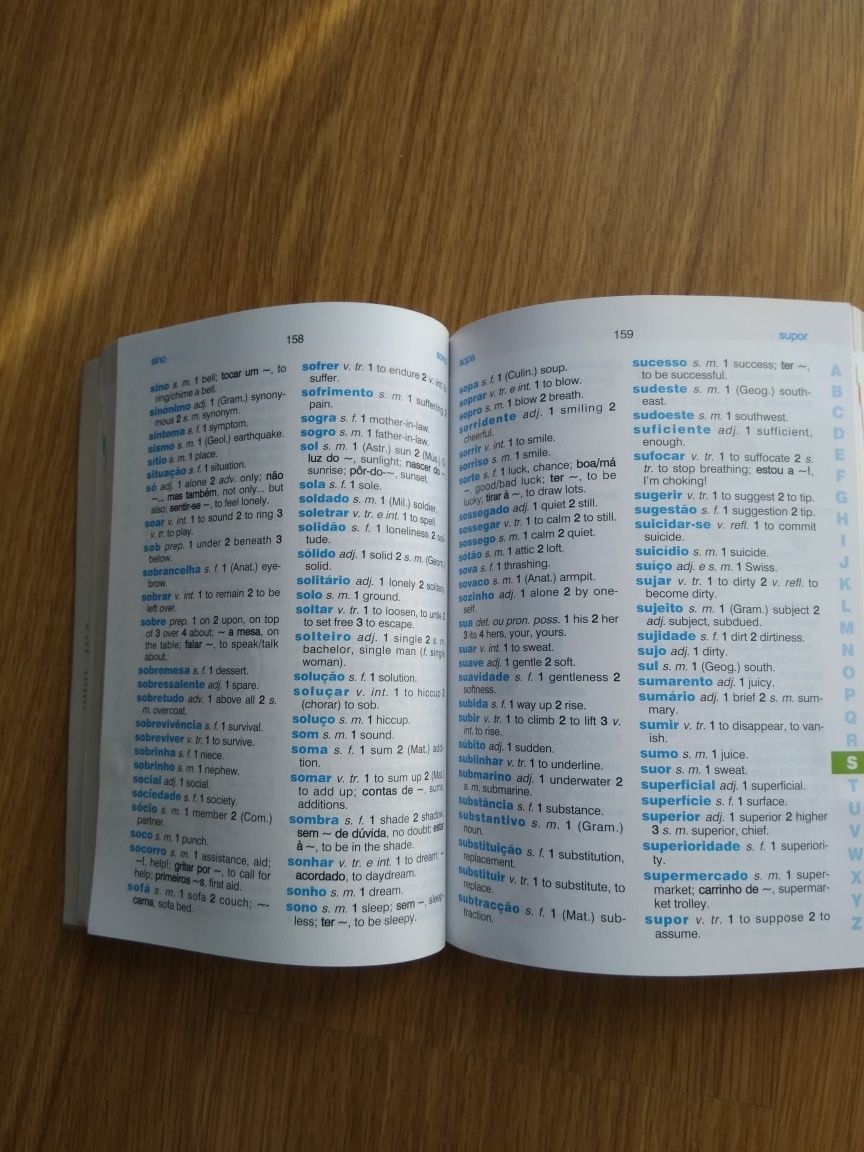 sino
158
sino s. m. 1 bell; tocar um ~, to
ring/chime a bell.
sinónimo adj. 1 (Gram.) synony-
mous 2 s. m. synonym.
sintoma s. f. 1 symptom.
sismo s. m. 1 (Geol.) earthquake.
sítio s. m. 1 place.
situação s. f. 1 situation.
só adj. 1 alone 2 adv. only; não
~... mas também, not only... but
also; sentir-se ~, to feel lonely.
soar v. int. 1 to sound 2 to ring 3
v. tr. to play.
sob prep. 1 under 2 beneath 3
below.
sobrancelha s. f. 1 (Anat.) eye-
brow.
sobrar v. int. 1 to remain 2 to be
left over.
sobre prep. 1 on 2 upon, on top
of 3 over 4 about; ~ a mesa, on
the table; falar ~, to speak/talk
about.
sobremesa s. f. 1 dessert.
sobressalente adj. 1 spare.
sobretudo adv. 1 above all 2 s.
m. overcoat.
sobrevivência s. f. 1 survival.
sobreviver v. tr. 1 to survive.
sobrinha s. f. 1 niece.
sobrinho s. m. 1 nephew.
social adj. 1 social.
sociedade s. f. 1 society.
sócio s. m. 1 member 2 (Com.)
partner.
soco s. m. 1 punch.
socorro s. m. 1 assistance, aid;
~!, help!; gritar por ~, to call for
help; primeiros ~s, first aid.
sofá s. m. 1 sofa 2 couch; ~-
cama, sofa bed.
sofrer v. tr. 1 to endure 2 v. int. to
suffer.
sofrimento s. m. 1 suffering 2
pain.
sogra s. f. 1 mother-in-law.
sogro s. m. 1 father-in-law.
sol s. m. 1 (Astr.) sun 2 (Mús.)
luz do ~, sunlight; nascer do ~
sunrise; pôr-do-~, sunset.
sola s. f. 1 sole.
soldado s. m. 1 (Mil.) soldier.
soletrar v. tr. e int. 1 to spell.
solidão s. f. 1 loneliness 2
tude.
sólido adj. 1 solid 2 s. m. (Geom.)
solid.
solitário adj. 1 lonely 2 solitary
solo s. m. 1 ground.
soltar v. tr. 1 to loosen, to untie 2
to set free 3 to escape.
solteiro adj. 1 single 2 s. m.
bachelor, single man (f. single
woman).
solução s. f. 1 solution.
soluçar v. int. 1 to hiccup 2
(chorar) to sob.
soluço s. m. 1 hiccup.
som s. m. 1 sound.
soma s. f. 1 sum 2 (Mat.) addi-
tion.
somar v. tr. 1 to sum up 2 (Mat.)
to add up; contas de ~, sums,
additions.
sombra s. f. 1 shade 2 shadow
sem ~ de dúvida, no doubt; estar
à ~, to be in the shade.
sonhar v. tr. e int. 1 to dream; ~
acordado, to daydream.
sonho s. m. 1 dream.
sono s. m. 1 sleep; sem ~, sleep-
less; ter ~, to be sleepy.
sopa
159
supor
sopa s. f. 1 (Culin.) soup.
soprar v. tr. e int. 1 to blow.
sopro s. m. 1 blow 2 breath.
sorridente adj. 1 smiling 2
cheerful.
sorrir v. int. 1 to smile.
sorriso s. m. 1 smile.
sorte s. f. 1 luck, chance; boa/má
~, good/bad luck; ter ~, to be
lucky; tirar à ~, to draw lots.
sossegado adj. 1 quiet 2 still.
sossegar v. tr. 1 to calm 2 to still.
sossego s. m. 1 calm 2 quiet.
sótão s. m. 1 attic 2 loft.
sova s. f. 1 thrashing.
sovaco s. m. 1 (Anat.) armpit.
sozinho adj. 1 alone 2 by one-
self.
sua det. ou pron. poss. 1 his 2 her
3 its 4 hers, your, yours.
suar v. int. 1 to sweat.
suave adj. 1 gentle 2 soft.
suavidade s. f. 1 gentleness 2
softness.
subida s. f. 1 way up 2 rise.
subir v. tr. 1 to climb 2 to lift 3 v.
int. to rise.
súbito adj. 1 sudden.
sublinhar v. tr. 1 to underline.
submarino adj. 1 underwater 2
s. m. submarine.
substância s. f. 1 substance.
substantivo s. m. 1 (Gram.)
noun.
substituição s. f. 1 substitution,
replacement.
substituir v. tr. 1 to substitute, to
replace.
subtracção s. f. 1 (Mat.) sub-
traction.
sucesso s. m. 1 success; ter ~,
to be successful.
sudeste s. m. 1 (Geog.) south-
east.
sudoeste s. m. 1 southwest.
suficiente adj. 1 sufficient,
enough.
sufocar v. tr. 1 to suffocate 2 s.
tr. to stop breathing; estou a ~!,
I'm choking!
sugerir v. tr. 1 to suggest 2 to tip.
sugestão s. f. 1 suggestion 2 tip.
suicidar-se v. refl. 1 to commit
suicide.
suicídio s. m. 1 suicide.
suíço adj. e s. m. 1 Swiss.
sujar v. tr. 1 to dirty 2 v. refl. to
become dirty.
sujeito s. m. 1 (Gram.) subject 2
adj. subject, subdued.
sujidade s. f. 1 dirt 2 dirtiness.
sujo adj. 1 dirty.
sul s. m. 1 (Geog.) south.
sumarento adj. 1 juicy.
sumário adj. 1 brief 2 s. m. sum-
mary.
sumir v. tr. 1 to disappear, to van-
ish.
sumo s. m. 1 juice.
suor s. m. 1 sweat.
superficial adj. 1 superficial.
superfície s. f. 1 surface.
superior adj. 1 superior 2 higher
3 s. m. superior, chief.
superioridade s. f. 1 superiori-
ty.
supermercado s. m. 1 super-
market; carrinho de ~, supermar-
ket trolley.
supor v. tr. 1 to suppose 2 to
assume.
A
B
C
D
E
F
G
H
I
J
K
L
M
N
O
P
Q
R
S
T
U
V
W
X
Y
Z